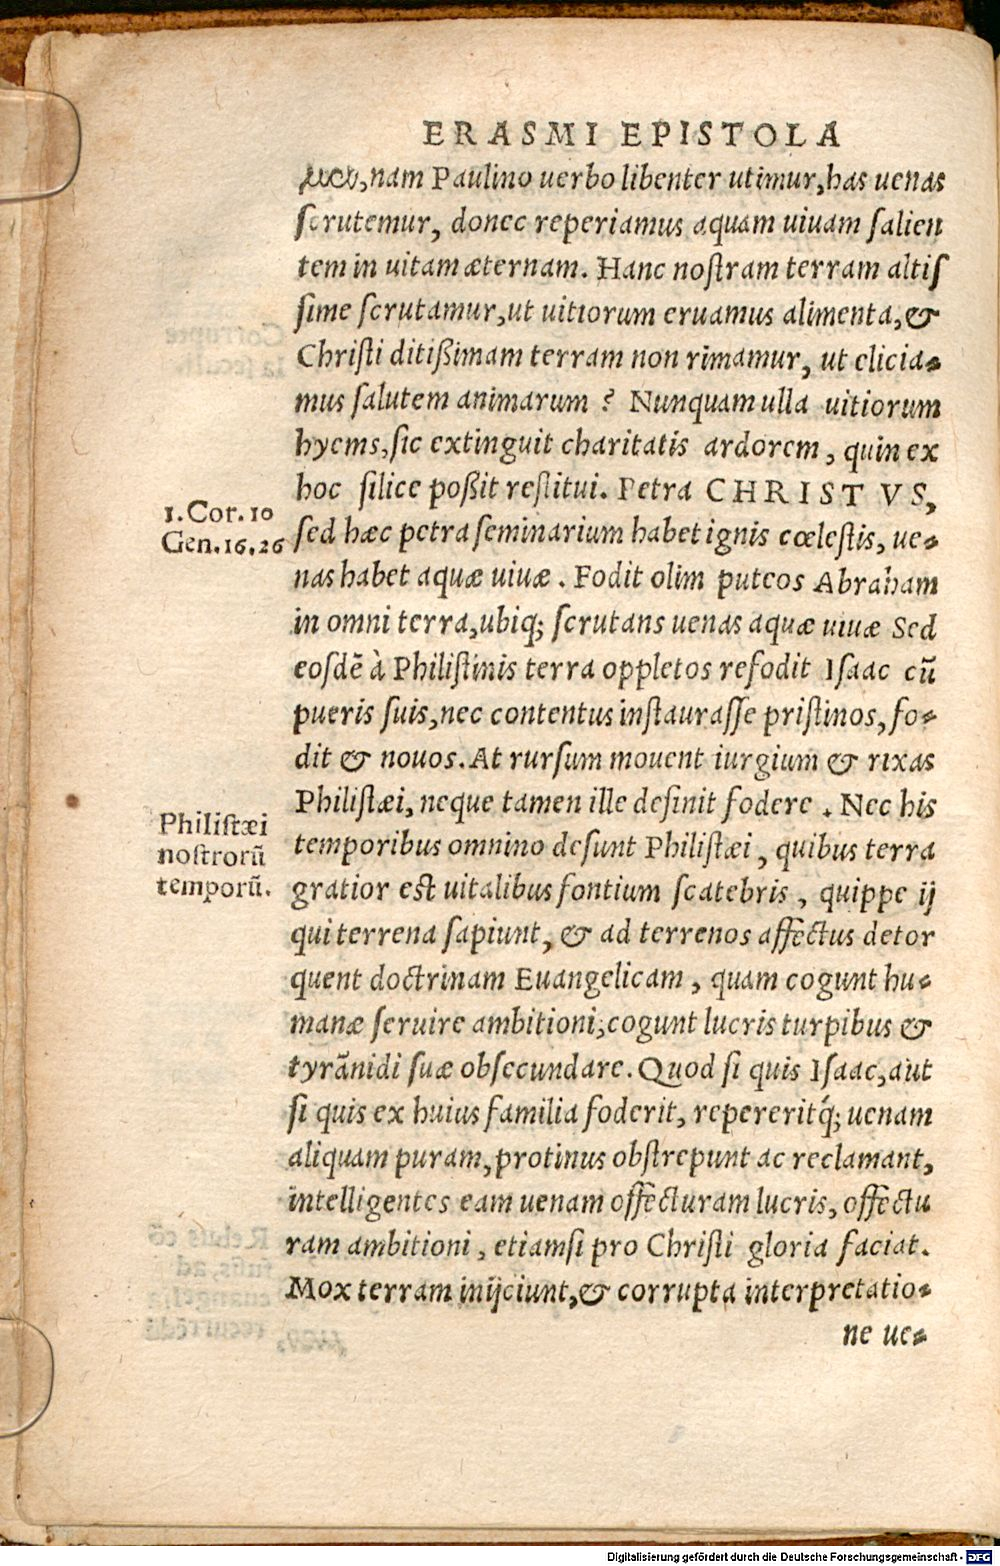 ERASMI EPISTOLA
μεν, nam Paulino uerbo libenter utimur, has uenas
scrutemur, donec reperiamus aquam uiuam salien
tem in uitam æternam. Hanc nostram terram altis
sime scrutamur, ut uitiorum eruamus alimenta, &
Christi ditißimam terram non rimamur, ut elicia-
mus salutem animarum? Nunquam ulla uitiorum
hyems, sic extinguit charitatis ardorem, quin ex
hoc silice poßit restitui. Petra CHRISTVS,
1. Cor. 10
Gen. 16. 26
sed hæc petra seminarium habet ignis cœlestis, ue-
nas habet aquæ uiuæ. Fodit olim puteos Abraham
in omni terra, ubiq; scrutans uenas aquæ uiuæ Sed
eosdē à Philistinis terra oppletos refodit Isaac cū
pueris suis, nec contentus instaurasse pristinos, fo-
dit & nouos. At rursum mouent iurgium & rixas
Philistæi, neque tamen ille desinit fodere. Nec his
Philistæi
nostrorū
temporū.
temporibus omnino desunt Philistæi, quibus terra
gratior est uitalibus fontium scatebris, quippe ij
qui terrena sapiunt, & ad terrenos affectus detor
quent doctrinam Euangelicam, quam cogunt hu-
manæ seruire ambitioni, cogunt lucris turpibus &
tyrānidi suæ obsecundare. Quod si quis Isaac, aut
si quis ex huius familia foderit, repereritq́; uenam
aliquam puram, protinus obstrepunt ac reclamant,
intelligentes eam uenam offecturam lucris, offectu
ram ambitioni, etiamsi pro Christi gloria faciat.
Mox terram inijciunt, & corrupta interpretatio-
ne ue-
Digitalisierung gefördert durch die Deutsche Forschungsgemeinschaft - DFG